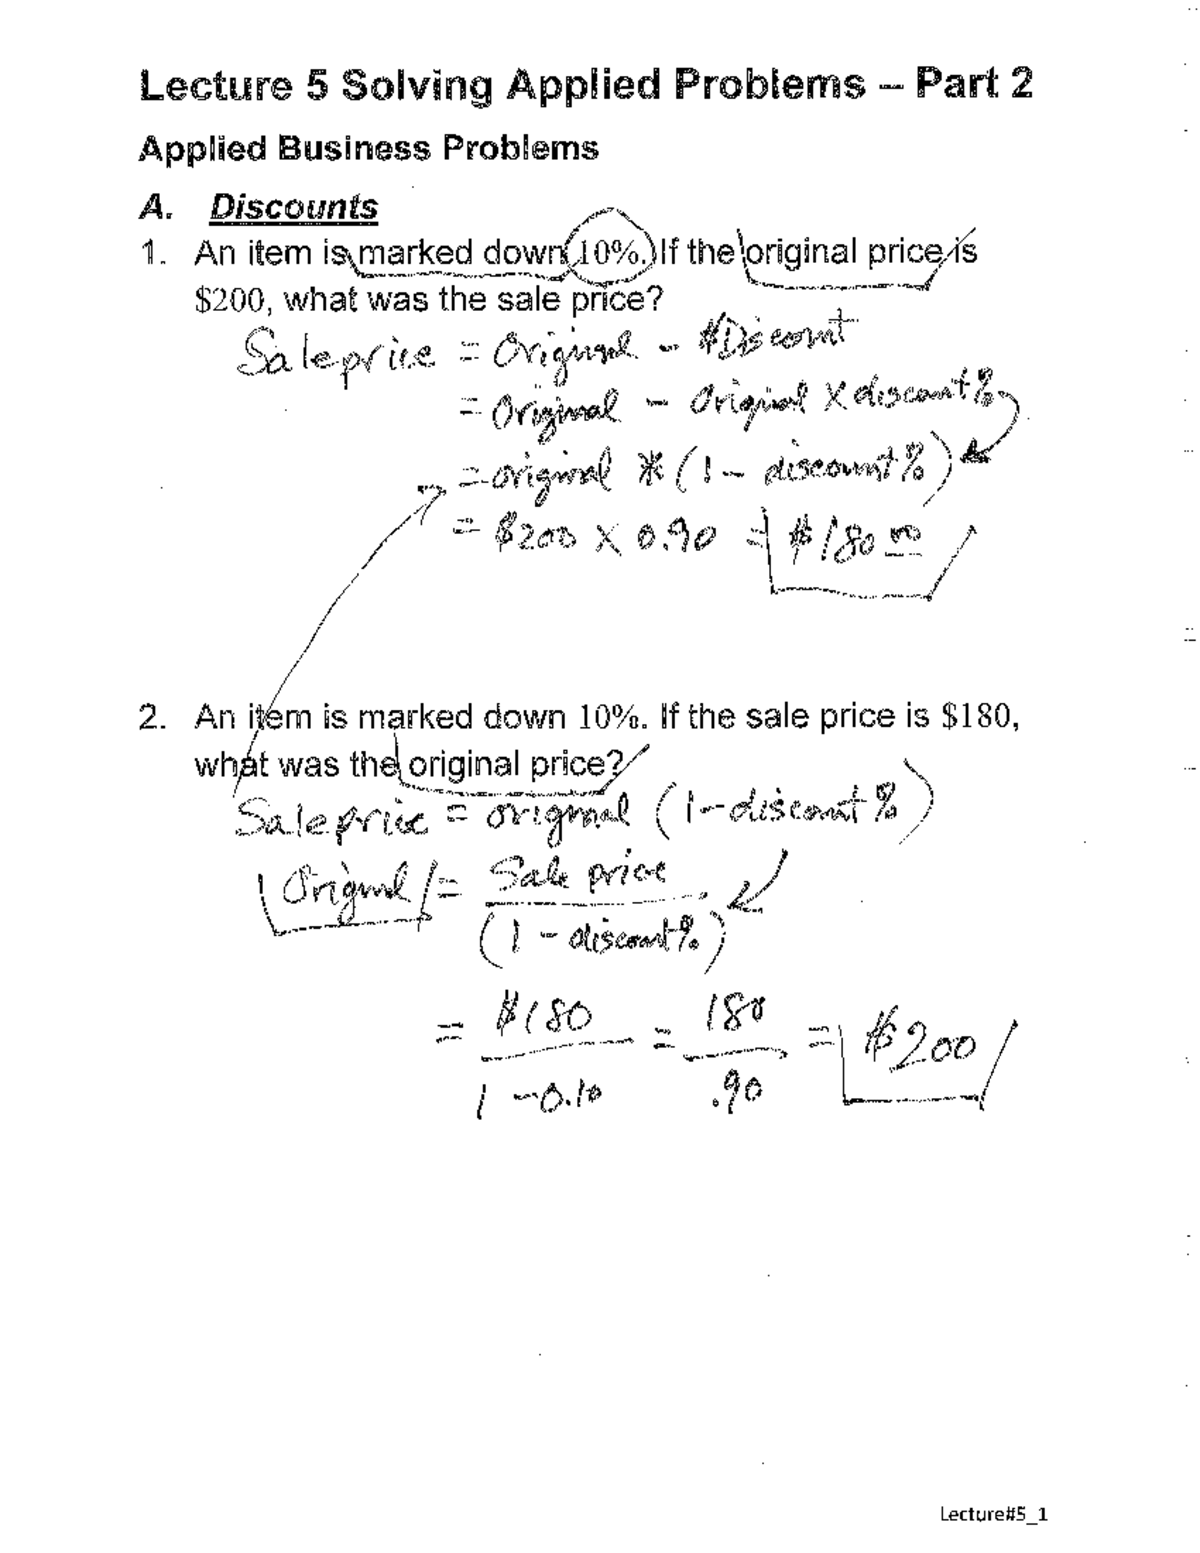 Lecture 5 Solving Applied Problems – Part 2
Applied Business Problems
A. Discounts
1. An item is marked down 10%. If the original price is
$200, what was the sale price?
Sale price = Original - $Discount
= Original - Original x discount%
= original * (1 - discount%)
= $200 x 0.90 = $180 00
2. An item is marked down 10%. If the sale price is $180,
what was the original price?
Sale price = original (1 - discount%)
Original = Sale price
(1 - discount%)
= $180 = 180 = $200
1 - 0.10 .90
Lecture#5_1